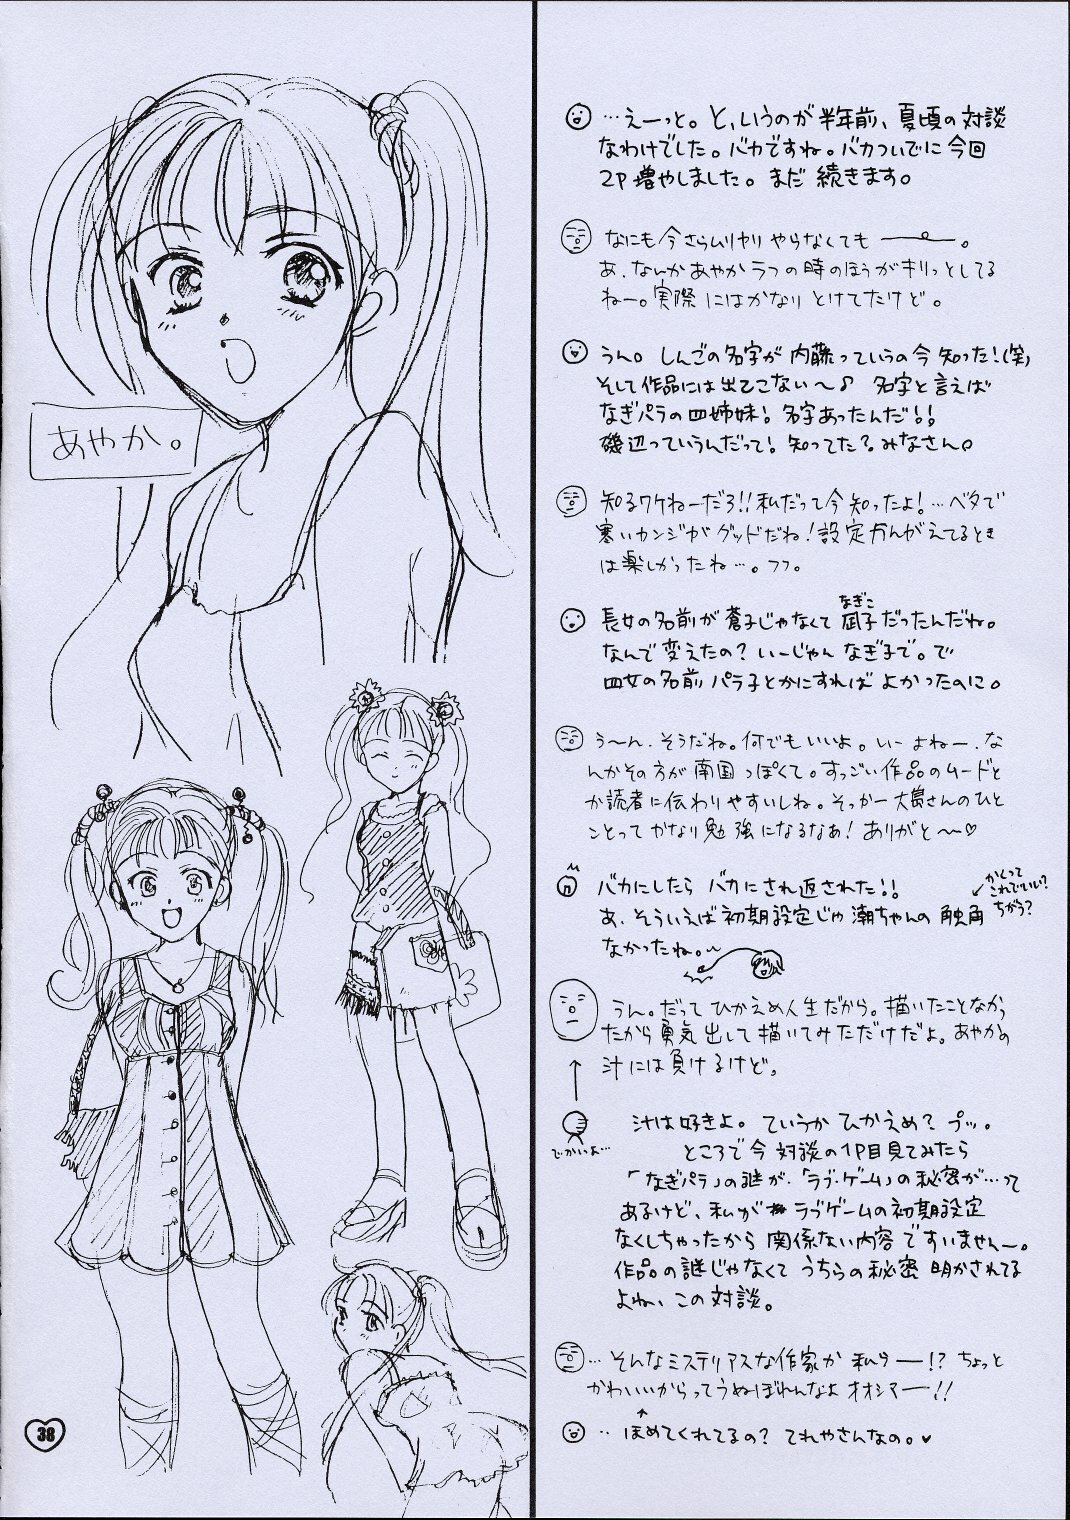 あやか。
38
…えーっと。と、いうのが半年前、夏頃の対談
なわけでした。バカですね。バカついでに今回
2P増やしました。まだ続きます。
なにも今さらムリヤリやらなくても―――。
あ、なんかあやかラフの時のほうがキリっとしてる
ねー。実際にはかなりとけてたけど。
うん。しんごの名字が内藤っていうの今知った!(笑)
そして作品には出てこない〜♪ 名字と言えば
なぎパラの四姉妹!名字あったんだ!!
磯辺っていうんだって!知ってた?みなさん。
知るワケねーだろ!!私だって今知ったよ!…ベタで
寒いカンジがグッドだね!設定かんがえてるとき
は楽しかったね…。フフ。
なぎこ
長女の名前が蒼子じゃなくて凪子だったんだね。
なんで変えたの?いーじゃんなぎ子で。で
四女の名前パラ子とかにすればよかったのに。
う〜ん、そうだね。何でもいいよ。いーよねー、な
んかその方が南国っぽくて。すっごい作品のムードと
か読者に伝わりやすいしね。そっかー大島さんのひと
ことってかなり勉強になるなあ!ありがと〜♡
バカにしたらバカにされ返された!!
あ、そういえば初期設定じゃ潮ちゃんの触角
なかったね。
かくって
これでいい?
ちがう?
うん。だってひかえめ人生だから。描いたことなかっ
たから勇気出して描いてみただけだよ。あやかの
汁には負けるけど。
でかいよ…
汁は好きよ。ていうかひかえめ?プッ。
ところで今対談の1P目見てみたら
「なぎパラ」の謎が、「ラブ・ゲーム」の秘密が…って
あるけど、私がラブゲームの初期設定
なくしちゃったから関係ない内容ですいませんー。
作品の謎じゃなくてうちらの秘密明かされてる
よね、この対談。
…そんなミステリアスな作家か私らー!?ちょっと
かわいいからってうぬぼれんなよオオシマー!!
…ほめてくれてるの?てれやさんなの。♥